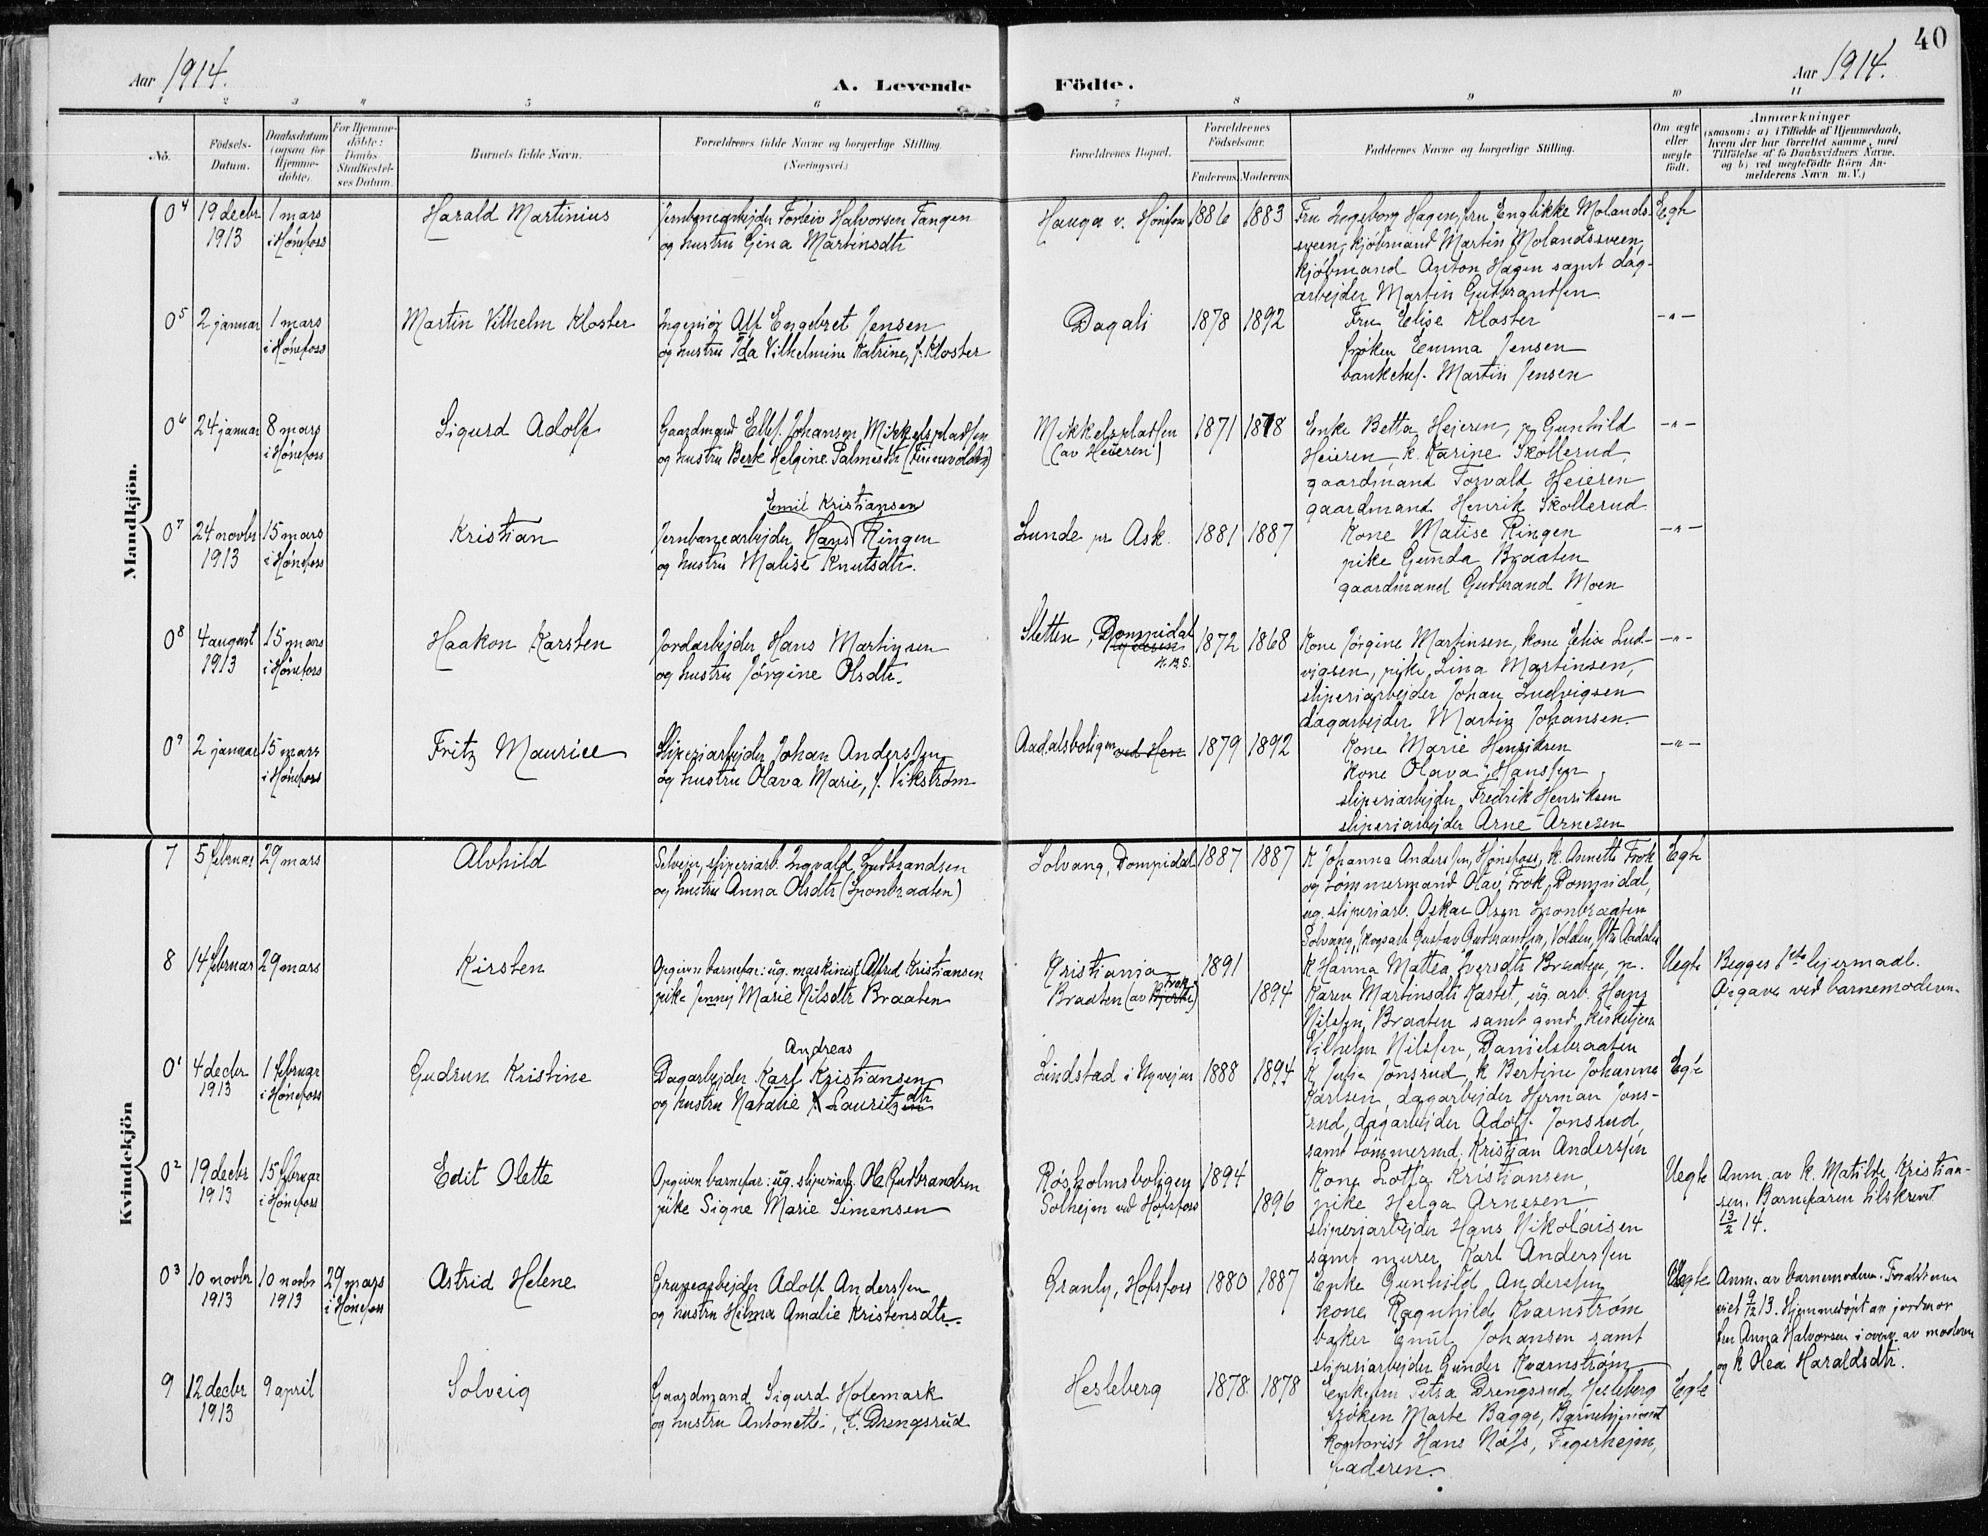 40
Aar 1914.
A. Levende Födte.
Aar 1914.
1 2 3 4 5 6 7 8 9 10 11
Nō.
Födsels-Datum.
Daabsdatum (ogsaa for Hjemme-döbte).
For Hjemme-döbte: Daabs Stadfæstel-ses Datum.
Barnets fulde Navn.
Forældrenes fulde Navne og borgerlige Stilling. (Næringsvei.)
Forældrenes Bopæl.
Forældrenes Födselsaar.
Faderens. Moderens.
Faddernes Navne og borgerlige Stilling.
Om ægte eller uægte födt.
Anmærkninger
(saasom: a) i Tilfælde af Hjemmedaab, hvem der har forrettet samme, med Tilföielse af to Daabsvidners Navne, og b) ved uægtefödte Börn An-melderens Navn m. V.)
Mandkjön.
0⁴ 19 decbr 1913
1 mars i Hönefoss
Harald Martinius
Jernbanearbejder Torleiv Halvorsen Tangen
og hustru Gina Martinsdtr
Hauga v. Hönefoss
1886 1883
Fru Ingeborg Hagen, fru Englikke Molands-
sveen, kjöbmand Martin Molandssveen,
kjöbmand Anton Hagen samt dag-
arbejder Martin Gudbrandsen
Egte
0⁵ 2 januar
1 mars i Hönefoss
Martin Vilhelm Kloster
Ingeniör Alf Engebret Jensen
og hustru Ida Vilhelmine Katrine, f. Kloster
Dagali
1878 1892
Fru Elise Kloster
fröken Emma Jensen
bankchef Martin Jensen
-"-
0⁶ 24 januar
8 mars i Hönefoss
Sigurd Adolf
Gaardmand Ellef Johansen Mikkelspladsen
og hustru Berte Helgine Palmesdtr
Mikkelspladsen
(av Heieren)
1871 1878
Enke Betta Heieren, p. Gunhild
Heieren, k. Karine Skollerud,
gaardmand Torvald Heieren
gaardmand Henrik Skollerud
-"-
0⁷ 24 novbr 1913
15 mars i Hönefoss
Kristian
Emil Kristiansen
Jernbanearbejder Hans Ringen
og hustru Matise Knutsdtr.
Lunde pr Ask.
1881 1887
Kone Matise Ringen
pike Gunda Braaten
gaardmand Gudbrand Moen
-"-
0⁸ 4 august 1913
15 mars i Hönefoss
Haakon Karsten
Jordarbejder Hans Martinsen
og hustru Jörgine Olsdtr.
Sletten, Dompidal
1872 1868
Kone Jörgine Martinsen, kone Elise Lud-
vigsen, pike Lina Martinsen,
sliperiarbejder Johan Ludvigsen
dagarbejder Martin Johansen.
-"-
0⁹ 2 januar
15 mars i Hönefoss
Fritz Maurice
Sliperiarbejder Johan Anderssen
og hustru Olava Marie, f. Vikström
Aadalsboligen ved Hen
1879 1892
Kone Marie Henriksen
kone Olava Hanssen
sliperiarbejder Fredrik Henriksen
sliperiarbejder Arne Arnesen
-"-
Kvindekjön
7 5 februar
29 mars
Alvhild
Selvejer, sliperiarb. Ingvald Gudbrandsen
og hustru Anna Olsdtr (Sponbraaten)
Solvang, Dompidal
1887 1887
K Johanna Anderssen, Hönefoss, k. Annette Frok
og tömmermand Olav Frok, Dompidal,
ug. sliperiarb. Oskar Olsen Sponbraaten
Solvang, skogsarb Gustav Gudbrandsen, Volden, Ytr Aadalen
Egte
8 14 februar
29 mars
Kirsten
Opgiven barnefar: ug. maskinist Alfred Kristiansen
pike Jenny Marie Nilsdtr Braaten
Kristiania
Braaten (av Bjerke) Frok
1891
1894
K Hanna Mattea Iversdtr Braaten, p.
Karen Martinsdtr Kastet, ug. arb. Hans
Nilssen Braaten samt gmd, kirketjener
Vilhelm Nilssen, Danielsbraaten
Uegte
Begges 1ste lejermaal.
Opgave ved barnemoderen.
0¹ 4 decbr 1913
1 februar i Hönefoss
Gudrun Kristine
Andreas
Dagarbejder Karl Kristiansen
og hustru Natalie Lauritzdtr
Lindstad i Nyvejen
1888 1894
K Julie Jonsrud, k Bertine Johanne
Karlsen, dagarbejder Herman Jons-
rud, dagarbejder Adolf Jonsrud,
samt tömmermd. Kristian Anderssen
Egte
0² 19 decbr 1913
15 februar i Hönefoss
Edit Olette
Opgiven barnefar: ug. sliperiarb. Ole Gudbrandsen
pike Signe Marie Simensen
Rösholmsboligen
Solhejm ved Hofsfoss
1894
1896
Kone Lotta Kristiansen,
pike Helga Arnesen,
sliperiarbejder Hans Nikolaisen
samt murer Karl Anderssen
Uegte
Anm. av k. Matilde Kristian-
sen. Barnefaren tilskrevet
13/2 14.
0³ 10 novbr 1913
10 novbr 1913
29 mars i Hönefoss
Astrid Helene
Grubearbejder Adolf Anderssen
og hustru Hilma Amalie Kristensdtr.
Granly, Hofsfoss
1880 1887
Enke Gunhild Anderssen
kone Ragnhild Kvarnström
baker Emil Johansen samt
sliperiarbejder Gunder Kvarnström
Uegte
Anm. av barnemoderen. Forældrene
viet 9/12 13. Hjemmedöpt av jordmor
fru Anna Halvorsen i overv. av moderen
og k Olea Haraldsdtr.
9 12 decbr 1913
9 april
Solveig
Gaardmand Sigurd Holemark
og hustru Antonette, f. Drengsrud
Hesleberg
1878 1878
Enkefru Petra Drengsrud, Hesleberg
fröken Marte Bagge, Barnehjemmet
kontorist Hans Næss, Fagerhejm,
faderen.
Egte